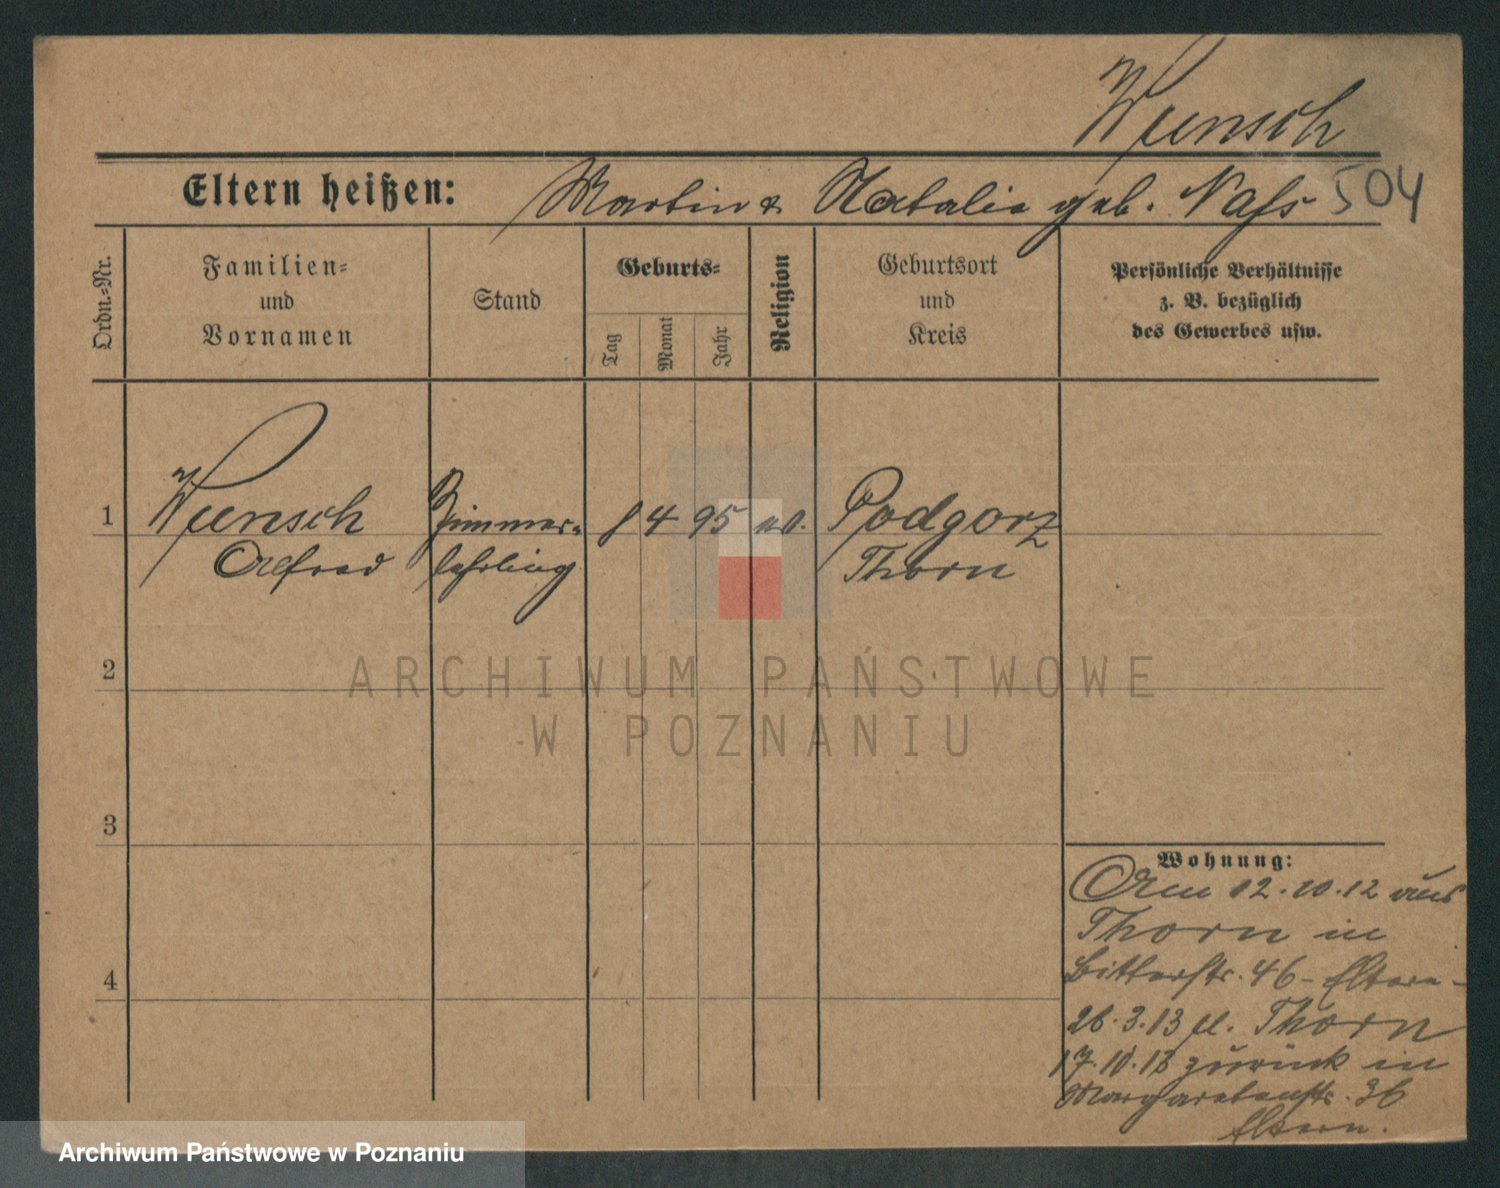 Wunsch
Eltern heißen: Martin & Natalie geb. Nass 504
Ordn.-Nr.
Familien-
und
Vornamen
Stand
Geburts-
Tag
Monat
Jahr
Religion
Geburtsort
und
Kreis
Persönliche Verhältnisse
z. B. bezüglich
des Gewerbes usw.
1 Wunsch Zimmer- 8 4 95 ev. Podgorz
Alfred lehrling Thorn
2
3
4
Wohnung:
Am 12.10.12 aus
Thorn in
Bitterstr. 46 - Eltern -
26.3.13 Thorn
17.10.13 zurück in
Margaretenstr. 36
Eltern.
ARCHIWUM PAŃSTWOWE
W POZNANIU
Archiwum Państwowe w Poznaniu